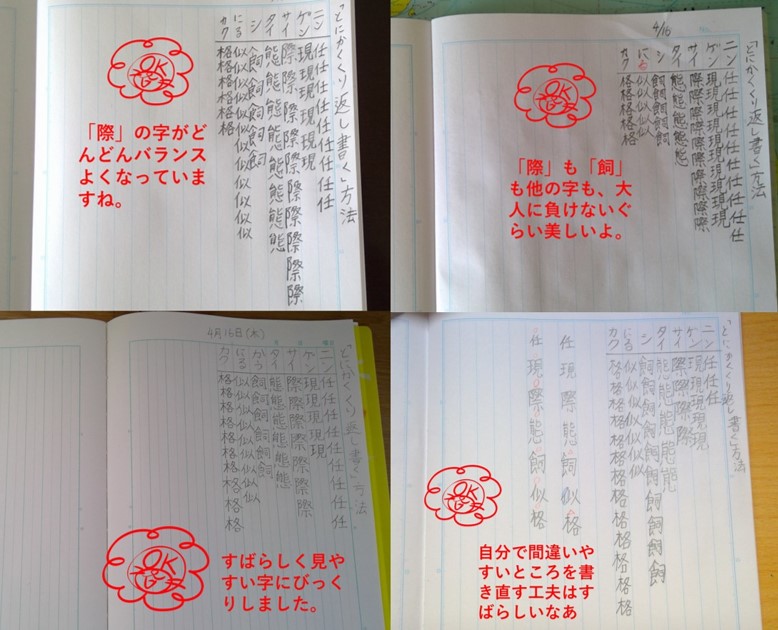 「とにかくくり返し書く」方法
ニン 任任任任任任任任
ゲン 現現現現現現現
サイ 際際際際際際際際際際際
タイ 態態態態態態態態態
シ 飼飼飼飼飼飼
にる 似似似似似似似似似似
カク 格格格格格
OK
「際」の字がど
んどんバランス
よくなっていま
すね。
4/16
「とにかくくり返し書く」方法
ニン 任任任任任任任任任
ゲン 現現現現現現現現
サイ 際際際際際際際際際
タイ 態態態態態
シ 飼飼飼飼
にる 似似似似
カク 格格格格格
OK
「際」も「飼」
も他の字も、大
人に負けないぐ
らい美しいよ。
4月16日(木)
「とにかくくり返し書く」方法
ニン 任任任任任任任任任
ゲン 現現現現現
サイ 際際際際際際際際
タイ 態態態態態態態
かう 飼飼飼飼飼飼
にる 似似似似似似似似
カク 格格格格格格格格格
OK
すばらしく見や
すい字にびっく
りしました。
「とにかくくり返し書く」方法
ニン 任任任
ゲン 現現現現現
サイ 際際際際際
タイ 態態態態態態
シ 飼飼飼飼飼飼飼飼飼飼
にる 似似似似似似
カク 格格格格格格格格格格格格格
任現際態飼似格
任現際態飼似格
OK
自分で間違いや
すいところを書
き直す工夫はす
ばらしいなあ